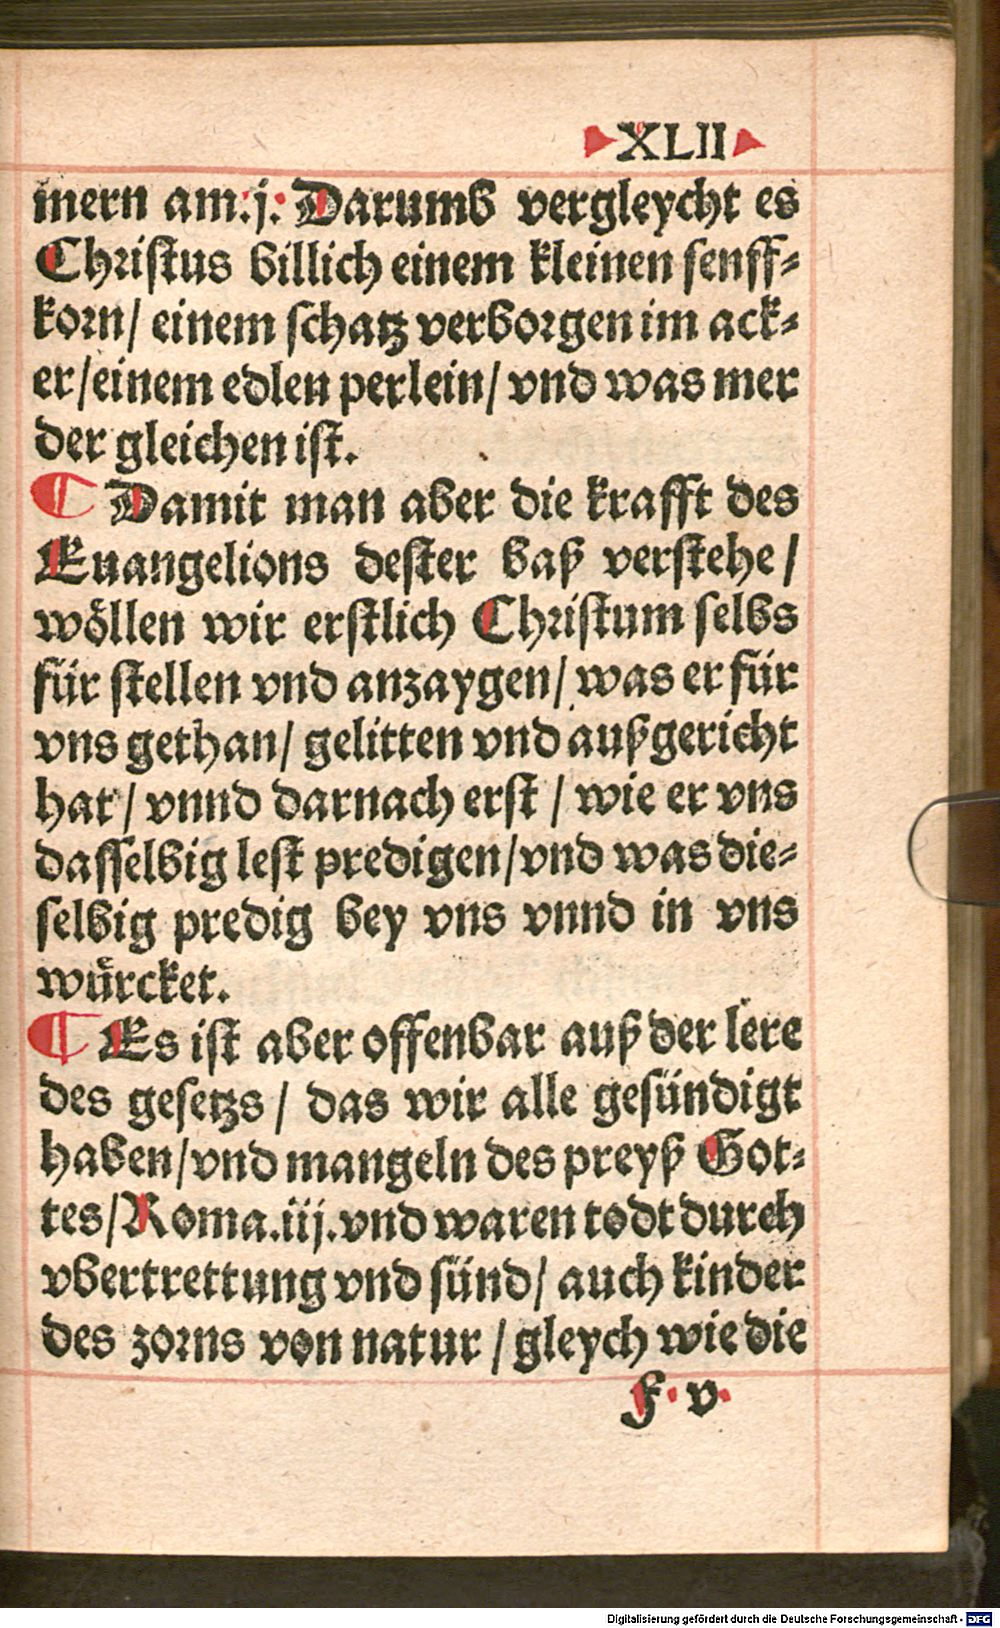 XLII
mern am.j. Darumb vergleycht es
Christus billich einem kleinen senff⸗
korn/ einem schatz verborgen im ack⸗
er/einem edlen perlein/ vnd was mer
der gleichen ist.
¶ Damit man aber die krafft des
Euangelions dester baß verstehe/
wöllen wir erstlich Christum selbs
für stellen vnd anzaygen/ was er für
vns gethan/ gelitten vnd außgericht
hat/ vnnd darnach erst / wie er vns
dasselbig lest predigen/vnd was die⸗
selbig predig bey vns vnnd in vns
würcket.
¶ Es ist aber offenbar auß der lere
des gesetzs / das wir alle gesündigt
haben/vnd mangeln des preyß Got⸗
tes/Roma.iij.vnd waren todt durch
vbertrettung vnd sünd/ auch kinder
des zorns von natur / gleych wie die
F v
Digitalisierung gefördert durch die Deutsche Forschungsgemeinschaft - DFG